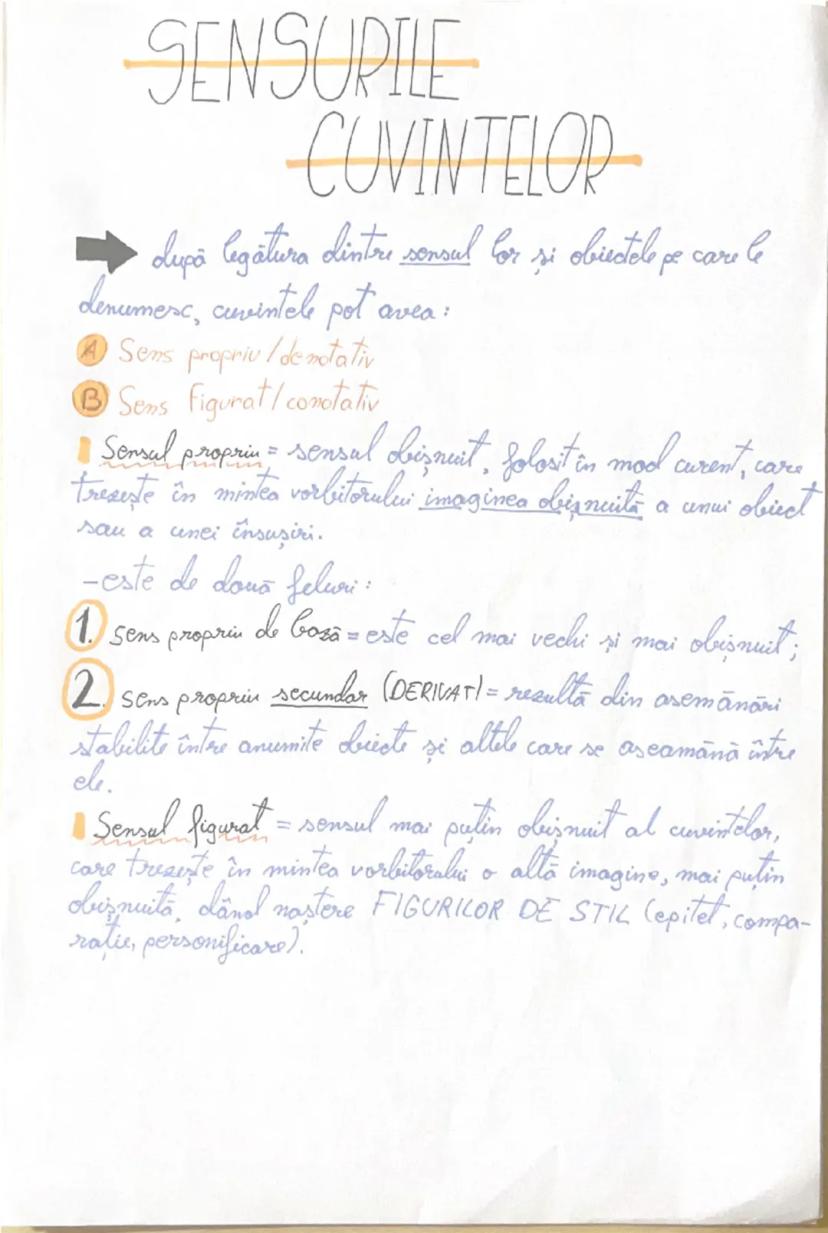 SENSURILE
CUVINTELOR
după legătura dintre sensul lor și obiectele pe care le
denumesc, cuvintele pot avea:
A Sens propriu/denotativ
B Sens figurat/conotativ
Sensul propriu = sensul obișnuit, folosit în mod curent, care
trezește în mintea vorbitorului imaginea obișnuită a unui obiect
sau a unei însușiri.
- este de două feluri:
1. Sens propriu de bază = este cel mai vechi și mai obișnuit;
2. Sens propriu secundar (DERIVAT) = rezultă din asemănări
stabilite între anumite obiecte și altele care se aseamănă între
ele.
Sensul figurat = sensul mai puțin obișnuit al cuvintelor,
care trezește în mintea vorbitorului o altă imagine, mai puțin
obișnuită, dând naștere FIGURILOR DE STIL (epitet, compa-
rație, personificare).